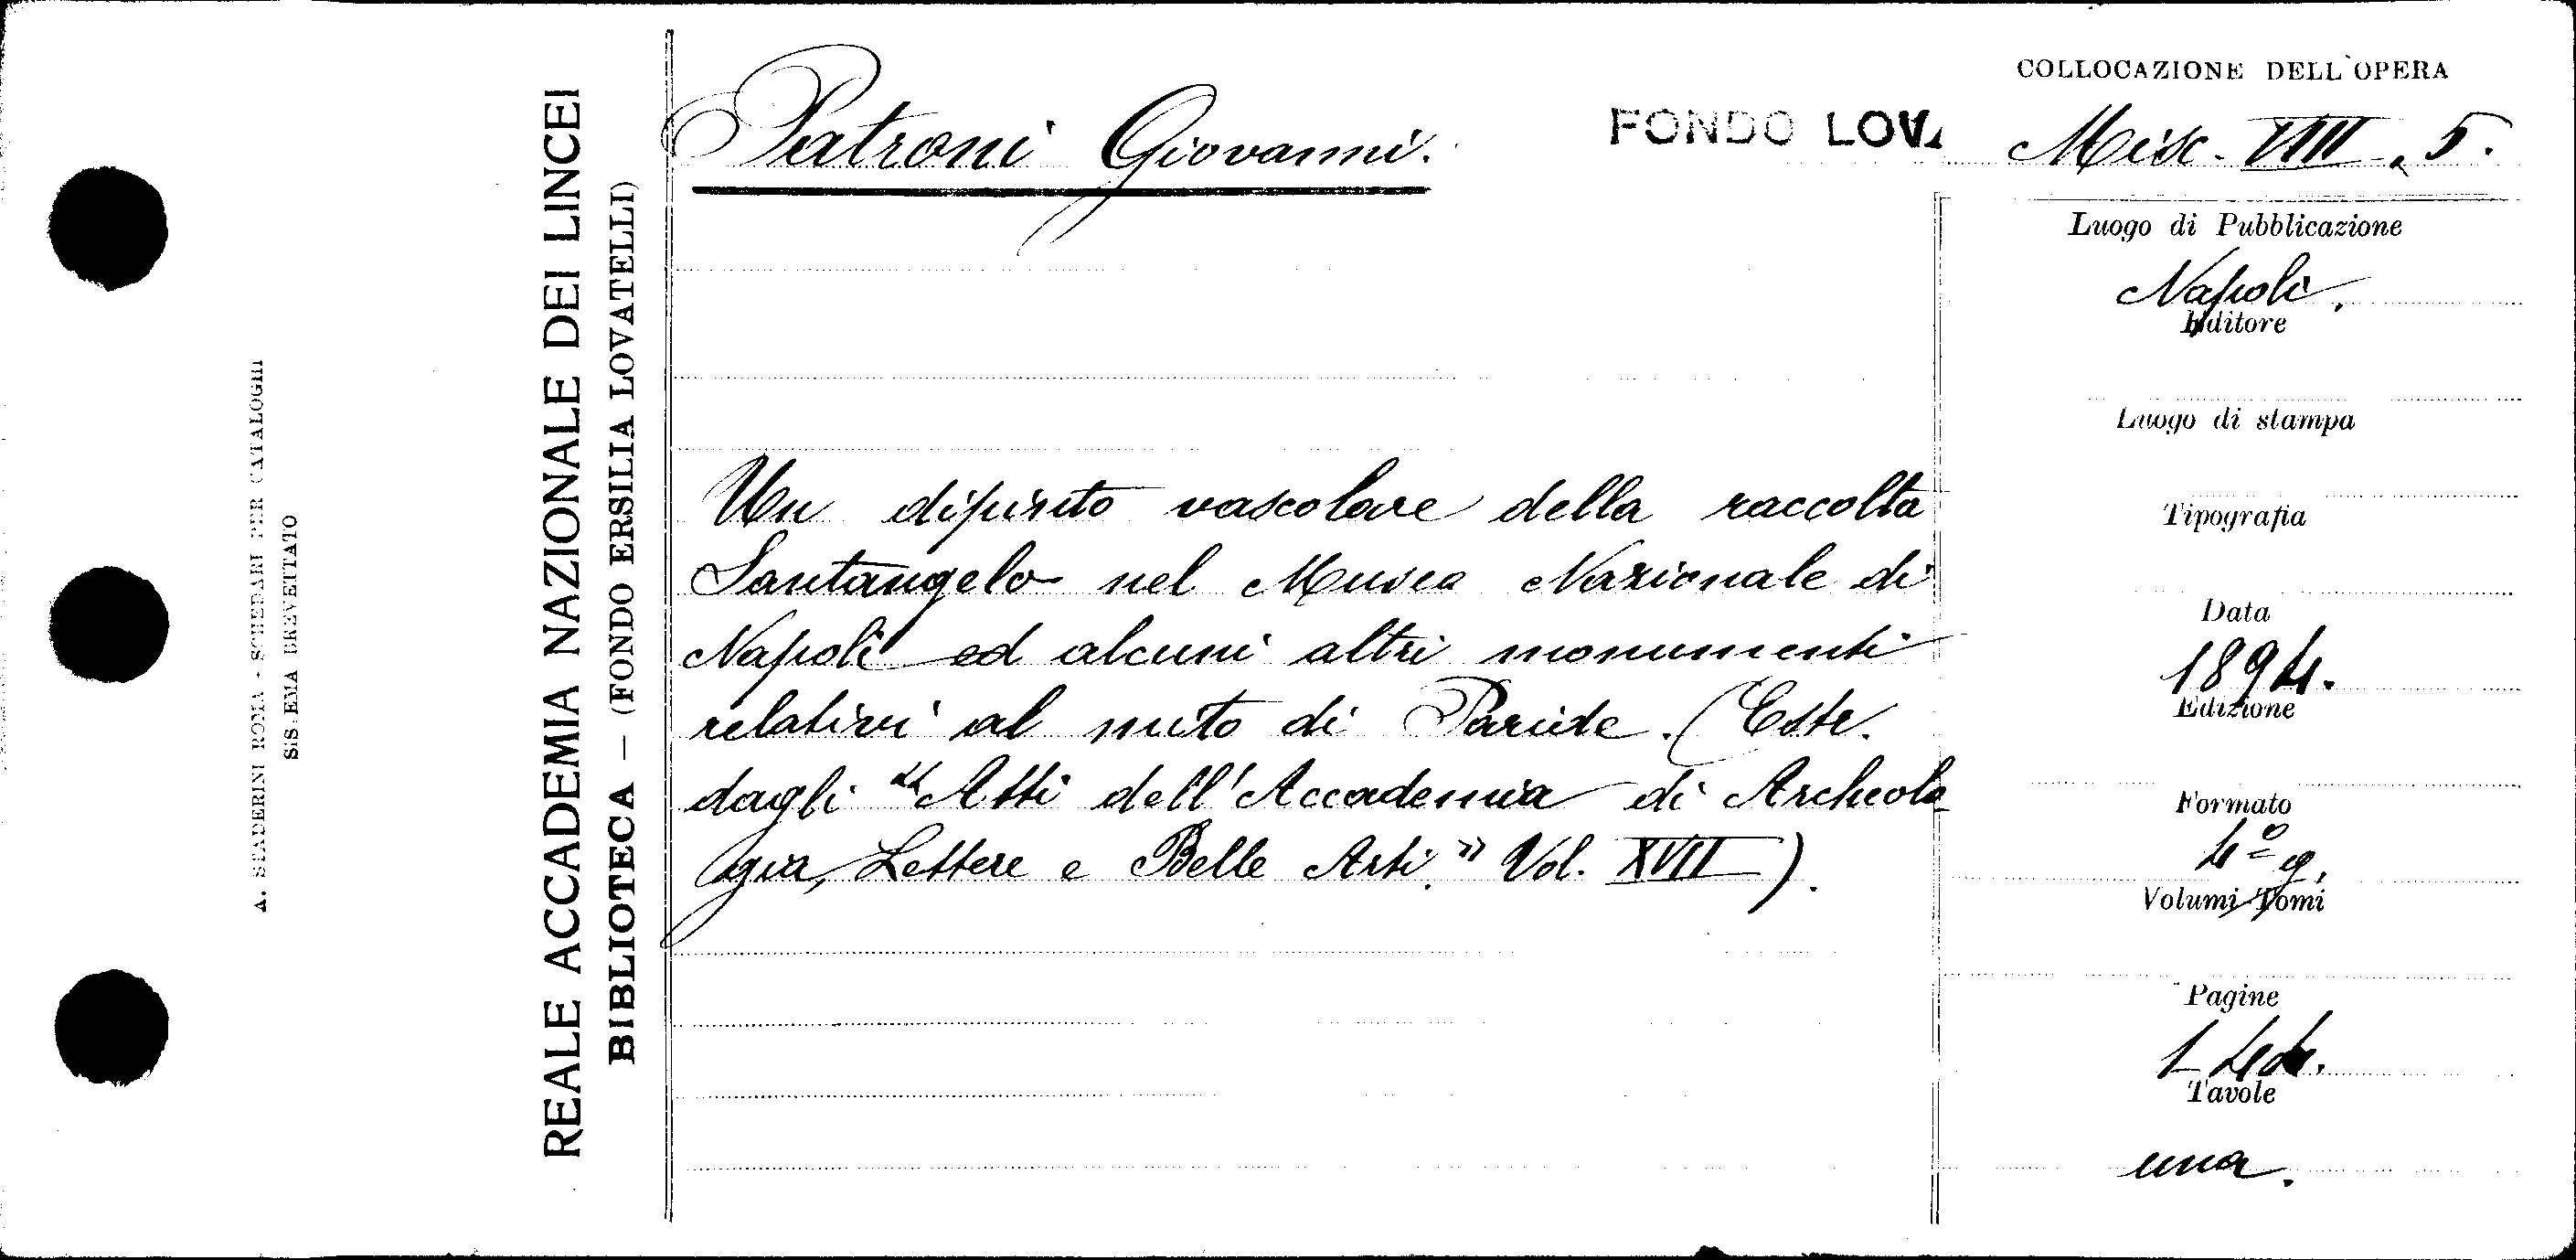 COLLOCAZIONE DELL'OPERA
Patroni Giovanni.
FONDO LOV
Misc. VIII, 5.
Un dipinto vascolare della raccolta
Santangelo nel Museo Nazionale di
Napoli ed alcuni altri monumenti
relativi al mito di Paride. (Estr.
dagli "Atti dell'Accademia di Archeolo
gia, Lettere e Belle Arti." Vol. XVII).
Luogo di Pubblicazione
Napoli.
Editore
Luogo di stampa
Tipografia
Data
1894.
Edizione
Formato
4º g.
Volumi-Tomi
Pagine
Tavole
una.
REALE ACCADEMIA NAZIONALE DEI LINCEI
BIBLIOTECA — (FONDO ERSILIA LOVATELLI)
A. STADERINI ROMA - SCHEDARI PER CATALOGHI
SISTEMA BREVETTATO